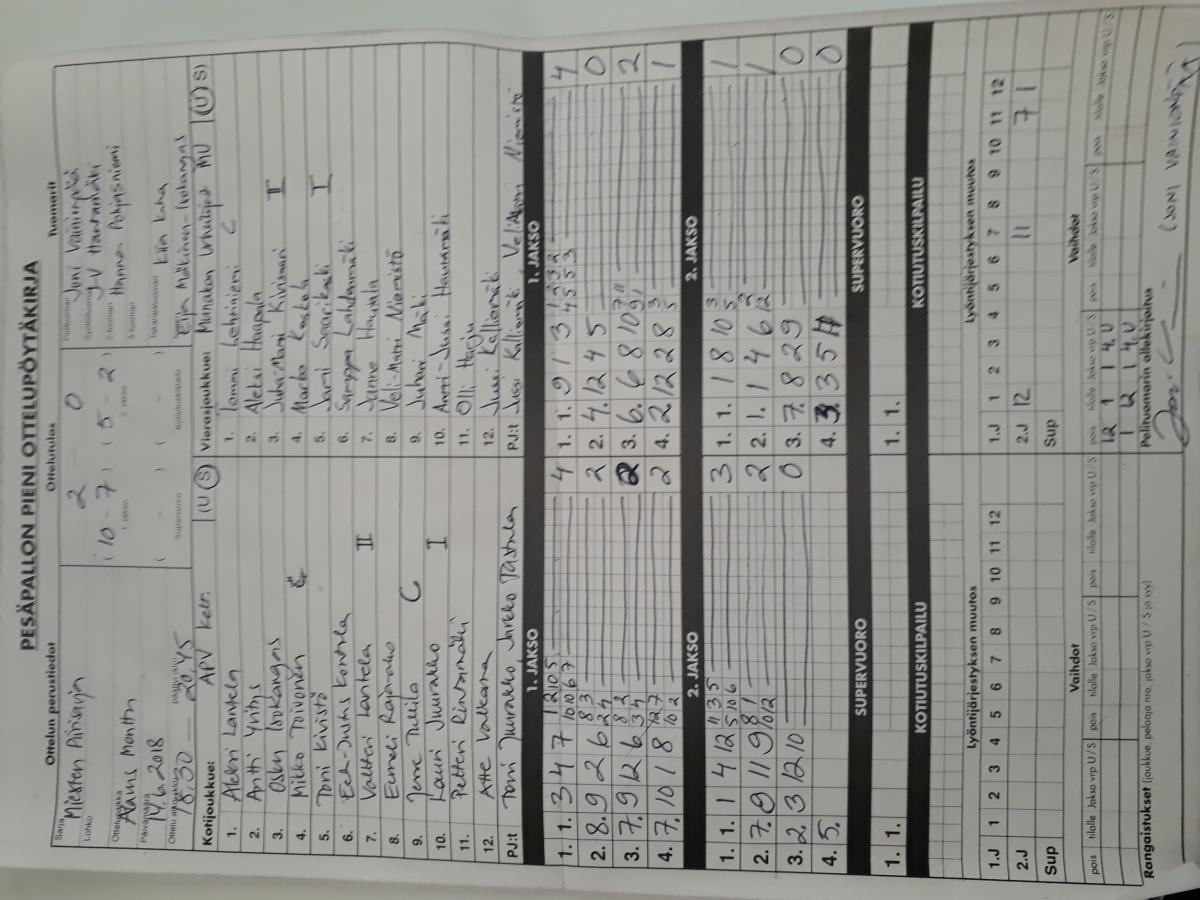 PESÄPALLON PIENI OTTELUPÖYTÄKIRJA
Ottelun perustiedot Ottelutulos Tuomarit
Sarja Miesten
Lohko
2 0
Joni
Ottelupaikka Alavus Monttu
(10 - 7) (5 - 2)
1. jakso 2. jakso
J-V Hautamäki
Hannu Pohjasniemi
Päivämäärä 14.6.2018
( - ) ( - )
Supervuoro Kotiutuskilpailu
Kiia Kuha
Ottelu alkoi 18.30 — 20.45
Eija Mäkinen-Isokangas
Kotijoukkue: APV (U S)
1. Aleksi Lantela
2. Antti Yritys
3. Osku Isokangas
4. Mikko Toivonen
5. Toni Kivistö
6. Eetu-Justus Kontola
7. Valtteri Lantela II
8. Eemeli Raja-aho
9. Jenne Tullila C
10. Lauri Juurakko I
11. Petteri Rintamäki
12. Atte Valkama
PJ:t Tomi Juurakko, Jarkko
Vierasjoukkue: Munakan Urheilijat MU (U S)
1. Tommi Lehtiniemi C
2. Aleksi Haapala
3. Juha-Matti Kivisaari II
4. Marko Koskela
5. Jami Saarikoski I
6. Samppa Lahdenmäki
7. Janne Hautala
8. Veli-Matti Niemistö
9. Juhani Mäki
10. Antti-Jussi Hautamäki
11. Olli Harju
12. Jussi Kalliomäki
PJ:t Jussi Kalliomäki, Veli-Matti Niemistö
1. JAKSO 1. JAKSO
1. 1. 3 4 7 1 2 10 5 4
10 10 6 7
2. 8. 9 2 6 8 3 2
2 4
3. 7. 9 12 6 8 2 2
3 4
4. 7. 10 1 8 12 7 2
10 2
1. 1. 9 1 3 1 2 3 2 4
4 5 5 3
2. 4. 12 4 5 0
3. 6. 6 8 10 7 11 2
9 1
4. 2 12 2 8 3 1
5
2. JAKSO 2. JAKSO
1. 1. 1 4 12 11 3 5 3
5 10 6
2. 7. 8 11 9 8 1 2
10 12
3. 2. 3 12 10 0
4. 5.
1. 1. 1 8 10 3 1
5
2. 1. 1 4 6 2 1
12
3. 7. 8 2 9 0
4. 3. 3 5 11 0
SUPERVUORO SUPERVUORO
1. 1. 1. 1.
KOTIUTUSKILPAILU KOTIUTUSKILPAILU
Lyöntijärjestyksen muutos Lyöntijärjestyksen muutos
1.J 1 2 3 4 5 6 7 8 9 10 11 12
2.J
Sup
1.J 1 2 3 4 5 6 7 8 9 10 11 12
2.J 12 11 7 1
Sup
Vaihdot Vaihdot
pois tilalle Jakso vrp U / S pois tilalle Jakso vrp U / S pois tilalle Jakso vrp U / S
pois tilalle Jakso vrp U / S pois tilalle Jakso vrp U / S pois tilalle Jakso vrp U / S
12 1 1 4. U
1 12 1 4. U
Rangaistukset (joukkue, pelaaja nro, jakso vrp U / S ja syy)
Pelituomarin allekirjoitus